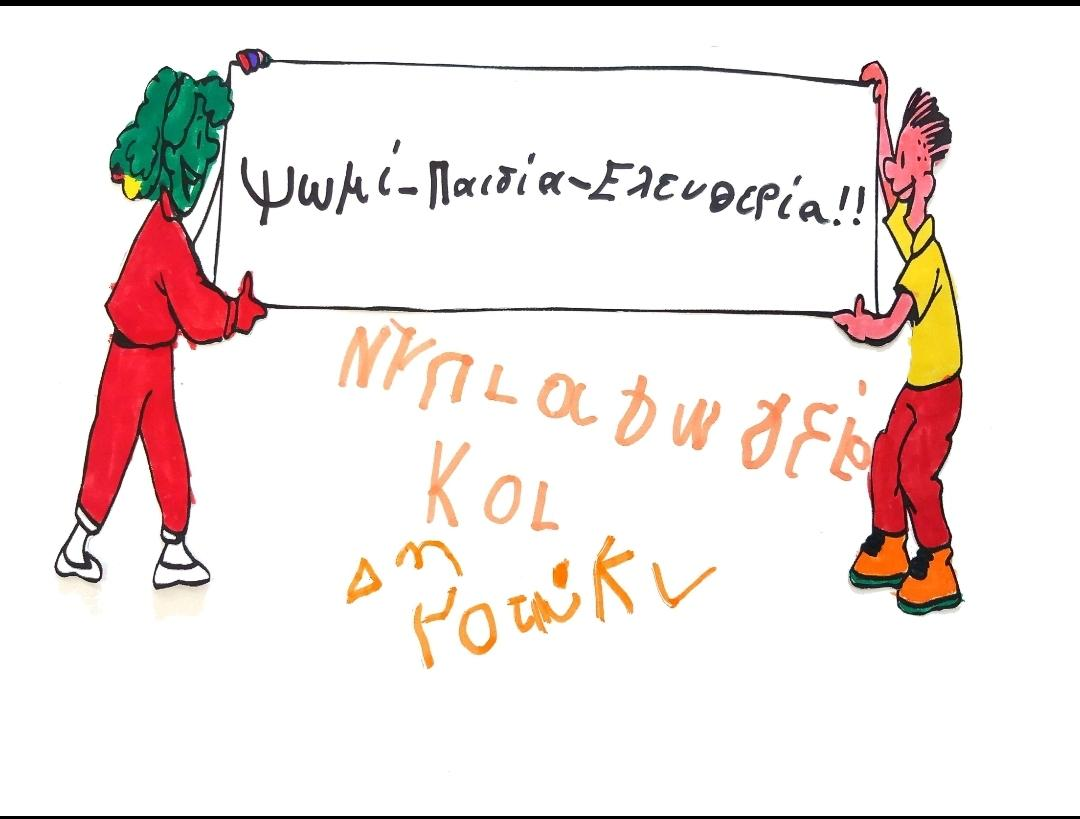 Ψωμί-Παιδία-Ελευθερία!!
Νηπιαγωγείο
Και
Δημοτικό